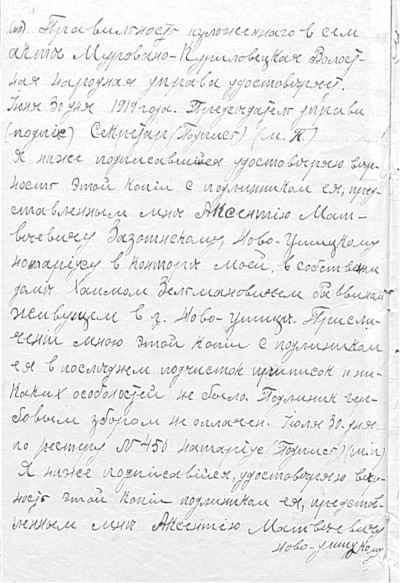 Правильность изложеннаго в сем
актѣ Мурговано-Куриловецкая Волост-
ная народная управа удостовѣряет.
Iюня 30 дня 1919 года. Председатель управы
(подпис) Секретар (Подпис) (м. П.)
Я ниже подписавшийся удостовѣряю вѣр-
ность этой копии с подлинником ея, пред-
ставленным мнѣ Аксентiю Мат-
вѣевичу Зазотнскому Ново-Ушицкому
нотарiусу в конторѣ моей, в собствен
домѣ Хаимом Зельмановичем
живущем в г. Ново-Ушицѣ. При сли-
ченiи мною этой копiи с подлинником
ея в последнем подчисток приписок и ни-
каких особеностей не было. Подлиник гер-
бовым збором не оплачен. Iюля 30. дня
по реестру № 450 натарiус (Подпис) (м.п)
Я ниже подписавiйся, удостовѣряю вѣр-
ность этой копiи подлиником ея, представ-
ленным мнѣ Аксентiю Матвѣевичу
Ново-Ушицкому